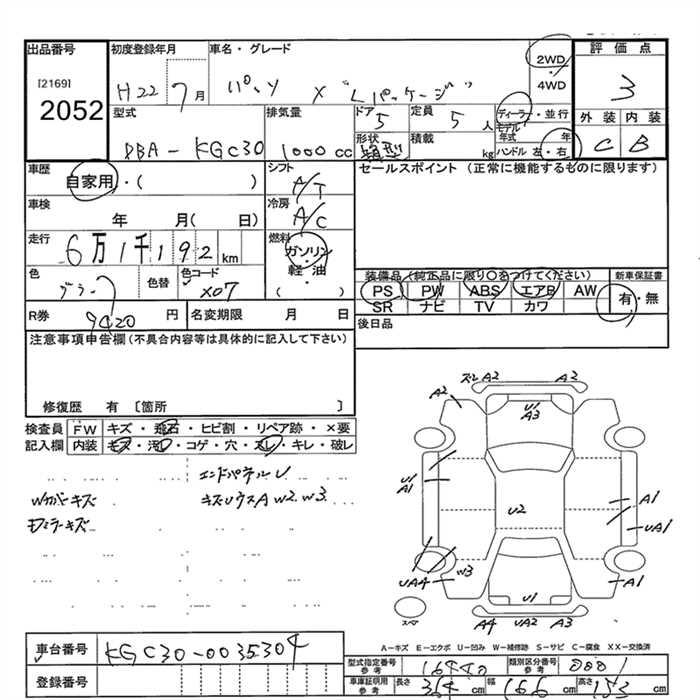 出品番号
[2169]
2052
初度登録年月
H22 7月
車名・グレード
パッソ X "Lパッケージ"
2WD
4WD
評価点
3
型式
DBA-KGC30
排気量
1000cc
ドア
5
形状
箱型
定員
5人
積載
kg
ディーラー・並行
モデル
年式 年
ハンドル 左・右
外装 内装
C B
車歴
自家用・( )
シフト
A/T
セールスポイント (正常に機能するものに限ります)
車検
年 月( 日)
冷房
A/C
走行
6万1千192km
燃料
ガソリン・
軽・油
( )
色
色替
色コード
X07
装備品(純正品に限り○をつけてください)
PS PW ABS エアB AW
SR ナビ TV カワ
新車保証書
有・無
R券
9420円
名変期限 月 日
後日品
注意事項申告欄(不具合内容等は具体的に記入して下さい)
修復歴 有 〔箇所 〕
検査員
記入欄
FW キズ・飛石・ヒビ割・リペア跡・×要
内装 キズ・汚レ・コゲ・穴・スレ・キレ・破レ
エンドパネルU
Wガラキズ
A W2.W3.
A2
A2
A2
U1
A3
U1
A1
U2
A1
UA1
UA4
W3
A1
U1
スペア
A4 UA2 A3
A-キズ E-エクボ U-凹み W-補修跡 S-サビ C-腐食 XX-交換済
車台番号
KGC30-0035304
登録番号
型式指定番号
参考
16440
類別区分番号
参考
0001
車庫証明用
参考
長さ 364cm 幅 166cm 高さ 153cm